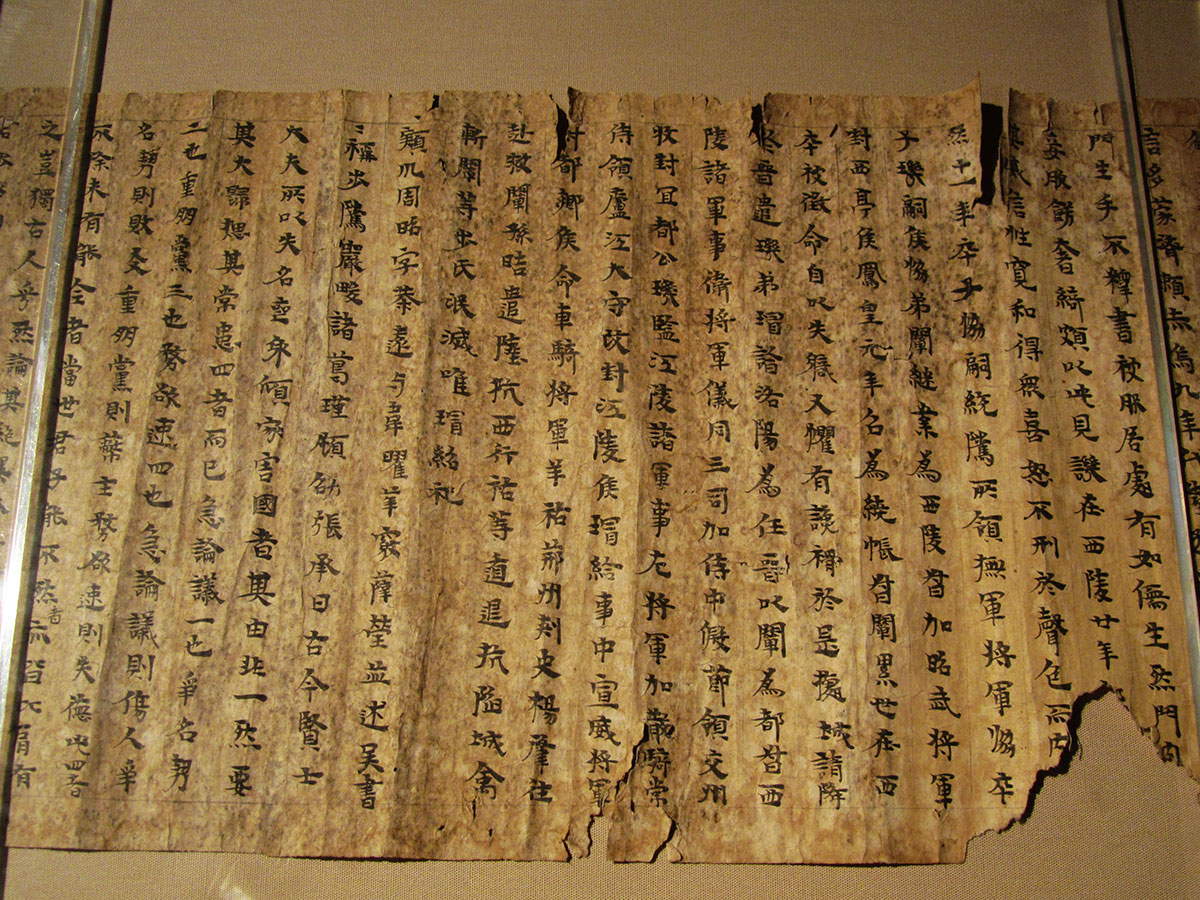 言多蒙濟賴赤烏九年代
門生手不釋書被服居處有如儒生然門內
妻服餝奢綺頗以此見譏在西陵廿年
其威信性寬和得眾喜怒不刑於聲色而內
然十一年卒子協嗣統騭所領撫軍將軍協卒
子璣嗣侯協弟闡継業為西陵督加昭武將軍
封西亭侯鳳皇元年召為繞帳督闡累世在西
卒被徵命自以失職又懼有讒禍於是據城請降
於晉遣璣弟璿詣洛陽為任晉以闡為都督西
陵諸軍事衛將軍儀同三司加侍中假節領交州
牧封宜都公璣監江陵諸軍事左將軍加散騎常
侍領廬江太守改封江陵侯璿給事中宣威將軍
封都鄉侯命車騎將軍羊祜荊州刾史楊肇往
赴救闡孫晧遣陸抗西行祜等遁退抗陷城禽
斬闡等步氏泯滅唯璿紹祀
潁川周昭字恭遠与韋曜華覈薛瑩並述吳書
〻稱步騭嚴畯諸葛瑾顧劭張承曰古今賢士
大夫所以失名喪身傾家害國者其由非一然要
其大歸揔其常患四者而已急論議一也爭名勢
二也重朋黨三也務欲速四也急論議則傷人爭
名勢則敗友重朋黨則蔽主務欲速則失德此四者
不除未有能全者當世君子能不然者亦皆比肩有
之豈獨古人乎然論其絕異